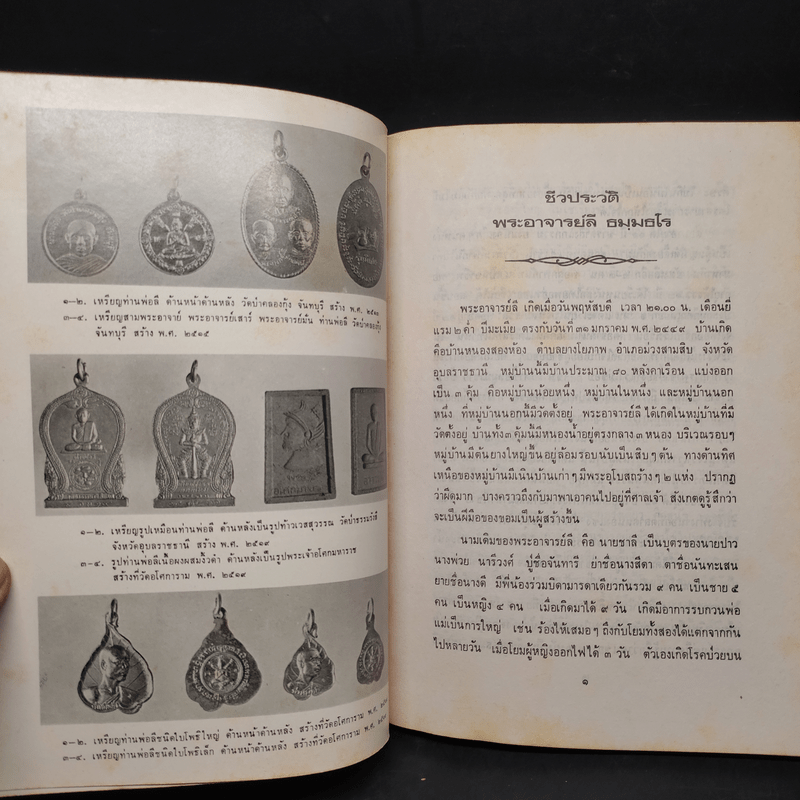 ๑-๒. เหรียญท่านพ่อลี ด้านหน้าด้านหลัง วัดป่าคลองกุ้ง จันทบุรี สร้าง พ.ศ.
๓-๔. เหรียญสามพระอาจาย์ พระอาจารย์เสาร์ พระอาจารย์มั่น ท่านพ่อลี วัดป่าคลองกุ้ง
จันทบุรี สร้าง พ.ศ. ๒๕๑๕
๑-๒. เหรียญรูปเหมือนท่านพ่อลี ด้านหลังเป็นรูปท้าวเวสสุวรรณ
จังหวัดอุบลราชธานี สร้าง พ.ศ. ๒๕๑๙
๓-๔. รูปท่านพ่อลีเนื้อผงผสมงิ้วดำ ด้านหลังเป็นรูปพระเจ้าอโศกมหาราช
สร้างที่วัดอโศการาม พ.ศ. ๒๕๑๙
๑-๒. เหรียญท่านพ่อลีชนิดใบโพธิ์ใหญ่ ด้านหน้าด้านหลัง สร้างที่วัดอโศการาม พ.ศ.
๓-๔. เหรียญท่านพ่อลีชนิดใบโพธิ์เล็ก ด้านหน้าด้านหลัง สร้างที่วัดอโศการาม พ.ศ.
ชีวประวัติ
พระอาจารย์ลี ธมฺมธโร
พระอาจารย์ลี เกิดเมื่อวันพฤหัสบดี เวลา ๒๑.๐๐ น. เดือนยี่
แรม ๒ ค่ำ ปีมะเมีย ตรงกับวันที่ ๓๑ มกราคม พ.ศ. ๒๔๔๙ บ้านเกิด
คือบ้านหนองสองห้อง ตำบลยางโยภาพ อำเภอม่วงสามสิบ จังหวัด
อุบลราชธานี หมู่บ้านนี้มีบ้านประมาณ ๘๐ หลังคาเรือน แบ่งออก
เป็น ๓ คุ้ม คือหมู่บ้านน้อยหนึ่ง หมู่บ้านในหนึ่ง และหมู่บ้านนอก
หนึ่ง ที่หมู่บ้านนอกนี้มีวัดตั้งอยู่ พระอาจารย์ลีได้เกิดในหมู่บ้านที่มี
วัดตั้งอยู่ บ้านทั้ง ๓ คุ้มนี้มีหนองน้ำอยู่ตรงกลาง ๓ หนอง บริเวณรอบๆ
หมู่บ้านมีต้นยางใหญ่ขึ้นอยู่ล้อมรอบนับเป็นสิบๆ ต้น ทางด้านทิศ
เหนือของหมู่บ้านมีเนินบ้านเก่าๆ มีพระอุโบสถร้างๆ ๒ แห่ง ปรากฏ
ว่าผีดุมาก บางคราวถึงกับมาพาเอาคนไปอยู่ที่ศาลเจ้า สังเกตดูรู้สึกว่า
จะเป็นฝีมือของขอมเป็นผู้สร้างขึ้น
นามเดิมของพระอาจารย์ลี คือ นายชาลี เป็นบุตรของนายปาว
นางพ่วย นารีวงศ์ ปู่ชื่อจันทารี ย่าชื่อนางสีดา ตาชื่อนันทะเสน
ยายชื่อนางดี มีพี่น้องร่วมบิดามารดาเดียวกันรวม ๙ คน เป็นชาย ๕
คน เป็นหญิง ๔ คน เมื่อเกิดมาได้ ๙ วัน เกิดมีอาการรบกวนพ่อ
แม่เป็นการใหญ่ เช่น ร้องไห้เสมอๆ ถึงกับโยมทั้งสองได้แตกจากกัน
ไปหลายวัน เมื่อโยมผู้หญิงออกไฟได้ ๓ วัน ตัวเองเกิดโรคป่วยบน
๑